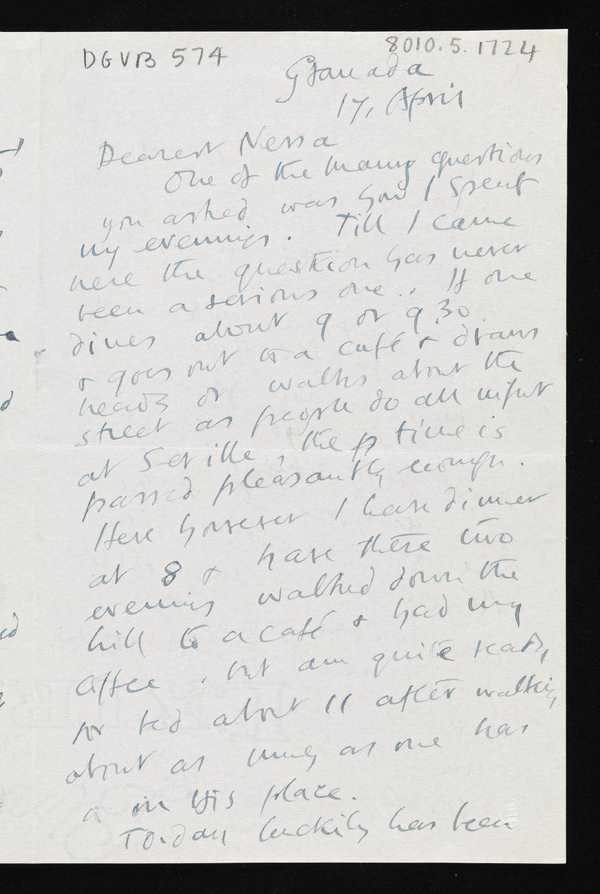 DGVB 574
8010.5.1724
Granada
17, April
Dearest Nessa
One of the many questions
you asked was how I spent
my evenings. Till I came
here the question has never
been a serious one. If one
dines about 9 or 9.30
& goes out to a café & draws
heads or walks about the
street as people do all night
at Seville, the time is
passed pleasantly enough.
Here however I have dinner
at 8 & have these two
evenings walked down the
hill to a café & had my
coffee, but am quite ready
for bed about 11 after walking
about as much as one has
in this place.
To-day luckily has been